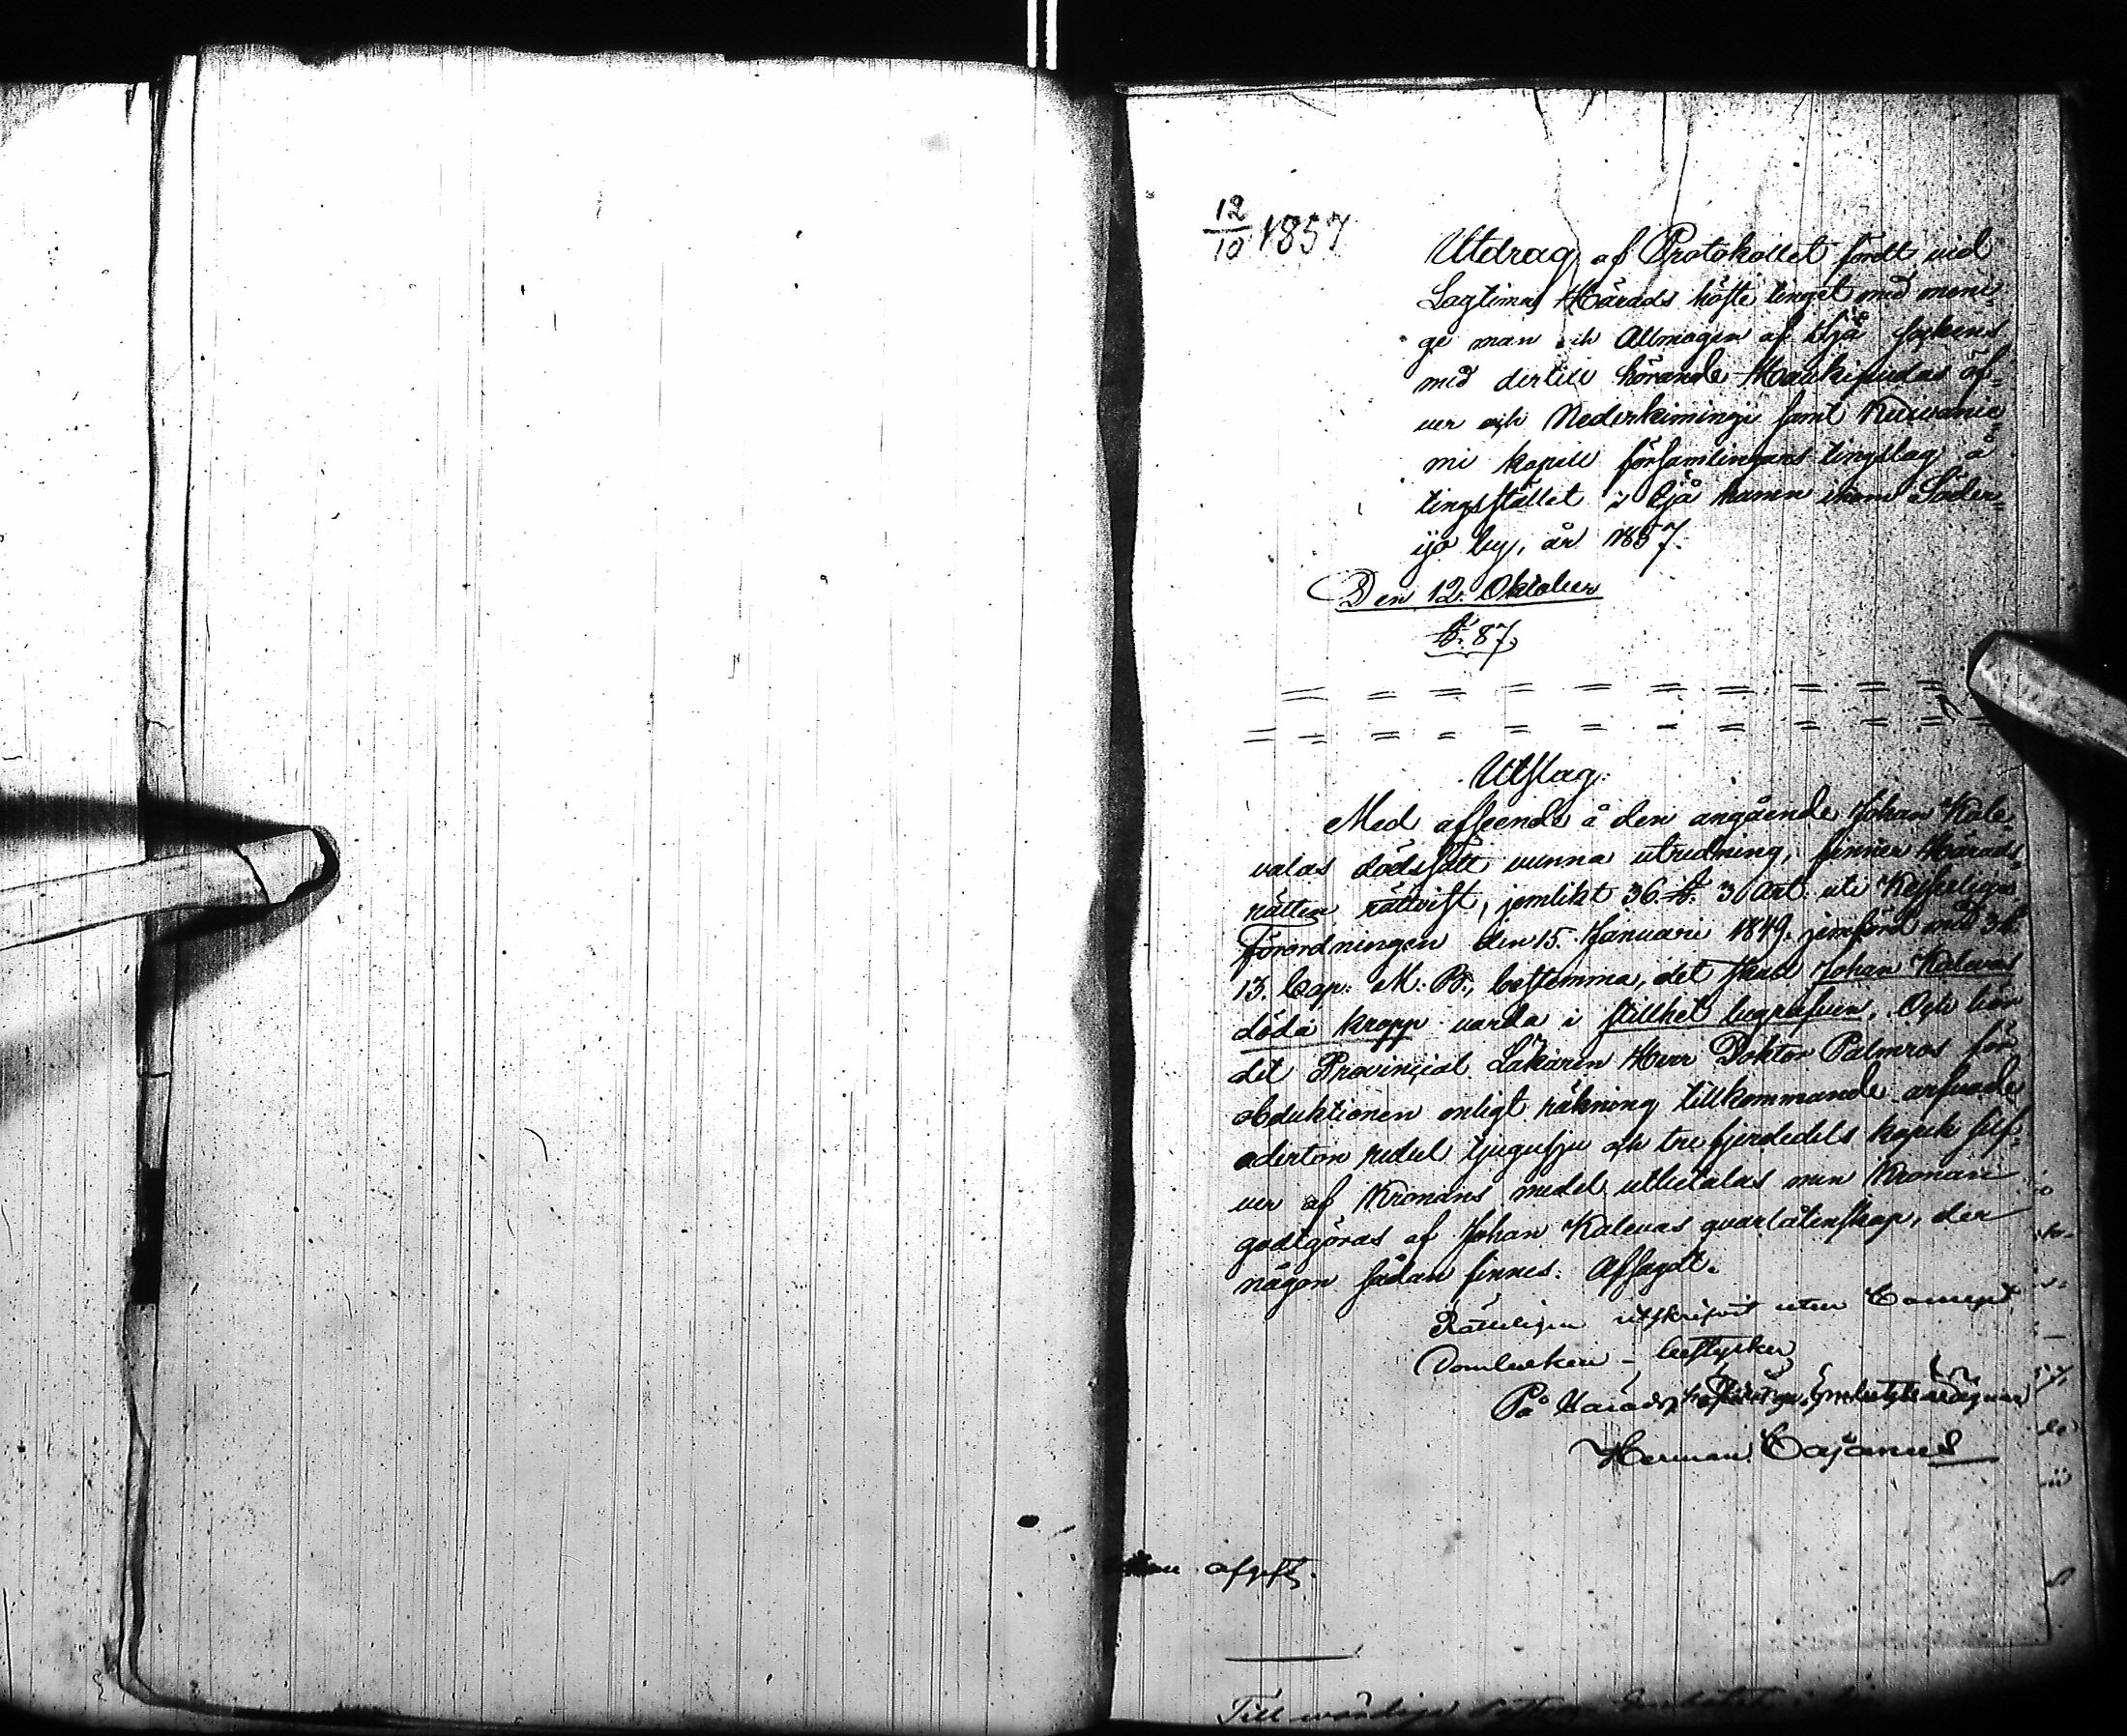 12/10 1857
Utdrag af Protokollet fördt vid
Lagtima Härads höste tinget med meni-
ge man och Allmogen af Ijå sockens
med dertill hörande Haukipudas öf-
ver och Nederkimingi samt Kuivanie-
mi kapell församlingars tingslag å
tingsstället i Ijå hamn inom Söder-
ijo by, år 1857.
Den 12. Oktober
§. 87.
Utslag:
Med afseende å den angående Johan Kale-
valas dödssätt vunna utredning, finner Härads-
rätten rättvist, jemlikt 36. §. 3 Art. uti Kejserliga
förordningen den 15. Januari 1849. jemförd med 3 §.
13. Cap: M. B., bestemma, det skall Johan Kalevas
döda kropp varda i stillhet begrafven. Och bör
det Provincial Läkaren Herr Doktor Palmros för
obduktionen enligt räkning tillkommande arfvode
aderton rubel tjugusju och tre fjerdedels kopek silf-
ver af Kronans medel utbetalas men Kronan
godtgöras af Johan Kalevas qvarlåtenskap, der
någon sådan finnes. Afsagdt.
Rätteligen utskrifvit utur Concept
Domboken - bestyrker
På Häradshöfdinge Embetets vägnar
Herman Cajanus
afgift.
Till